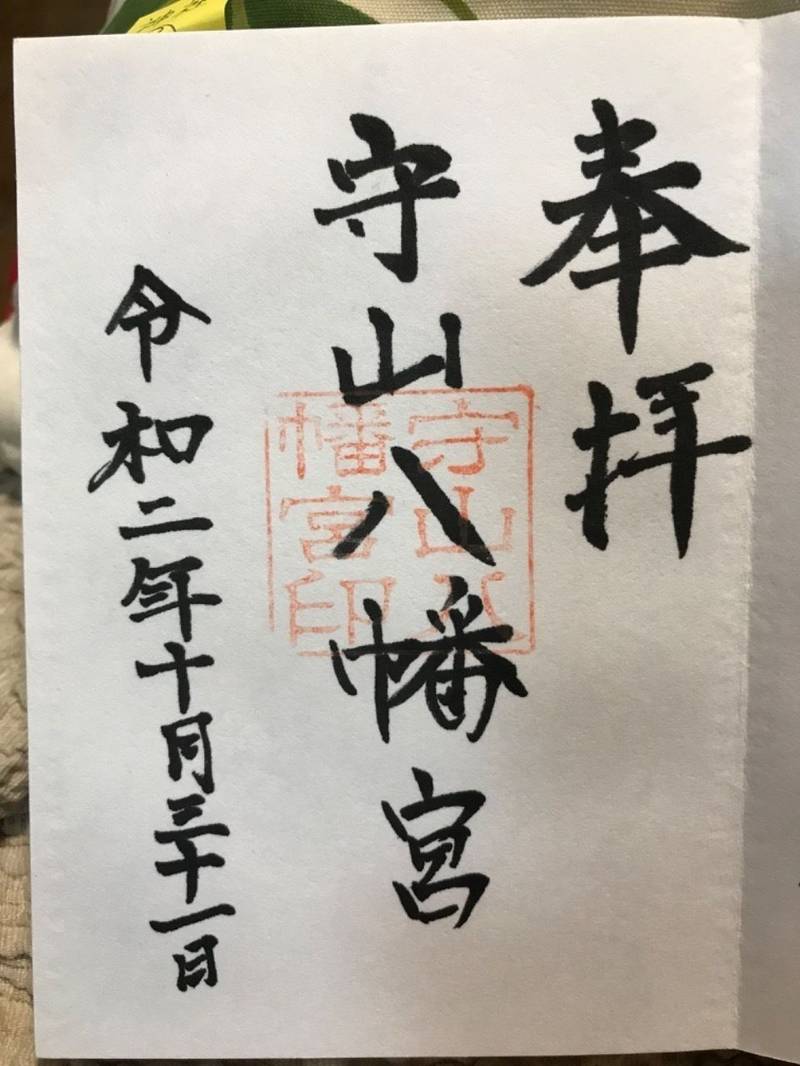 奉拝
守山八幡宮
守山八
幡宮印
令和二年十月三十一日